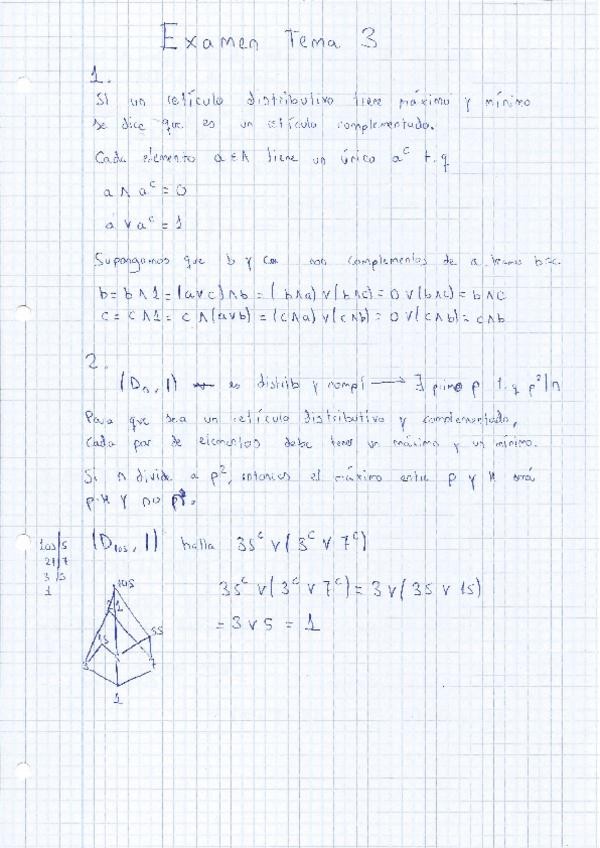 Examen Tema 3
1.
Si un retículo distributivo tiene máximo y mínimo
se dice que es un retículo complementado.
Cada elemento a ∈ A tiene un único a^c t.q
a ∧ a^c = 0
a ∨ a^c = 1
Supongamos que b y c son complementos de a. b=c.
b = b ∧ 1 = (a ∨ c) ∧ b = (b ∧ a) ∨ (b ∧ c) = 0 ∨ (b ∧ c) = b ∧ c
c = c ∧ 1 = c ∧ (a ∨ b) = (c ∧ a) ∨ (c ∧ b) = 0 ∨ (c ∧ b) = c ∧ b
2.
(D_n, |) es distrib y nompl → ∃ primo p t.q p²|n
Para que sea un retículo distributivo y complementado,
cada par de elementos debe tener un máximo y un mínimo.
Si n divide a p², entonces el máximo entre p y n será
p·n y no p².
(D_105, |) halla 35^c ∨ (3^c ∨ 7^c)
105 | 5
21 | 7
3 | 3
1
35^c ∨ (3^c ∨ 7^c) = 3 ∨ (35 ∨ 15)
= 3 ∨ 5 = 1
105
21
15
35
3
7
1